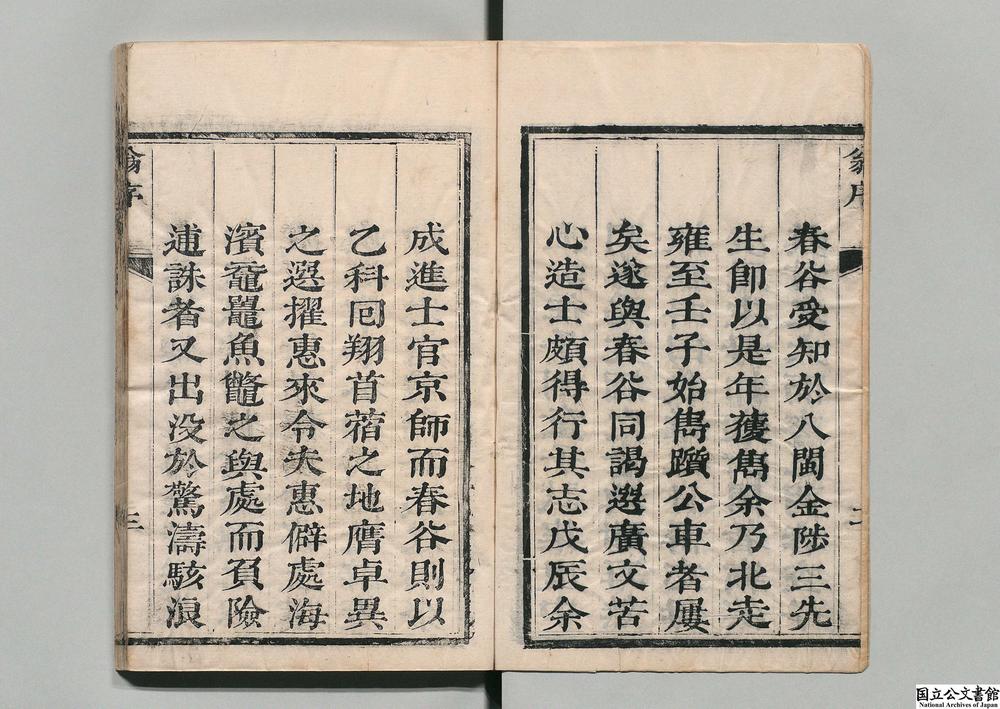 翁序
春谷受知於八閩金陟三先
生卽以是年獲雋余乃北走
雍至壬子始雋躓公車者屢
矣遂與春谷同謁選廣文苦
心造士頗得行其志戊辰余
二
成進士官京師而春谷則以
乙科囘翔首蓿之地膺卓異
之選擢惠來令夫惠僻處海
濱黿鼉魚鼈之與處而負險
逋誅者又出没於驚濤駭浪
翁序
三
国立公文書館
National Archives of Japan